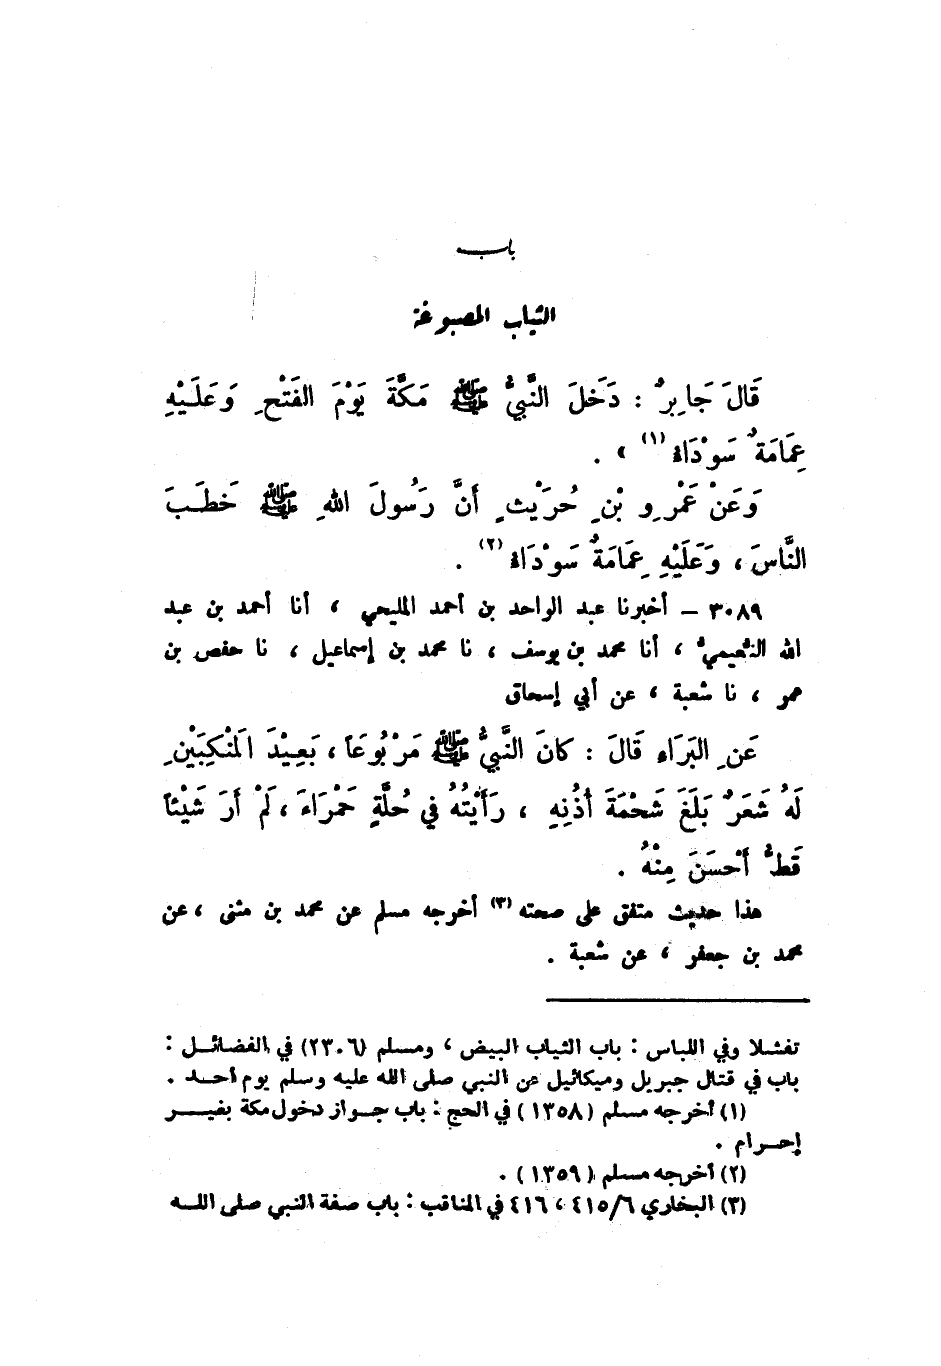 باب
الثياب المصبوغة
قَالَ جَابِرٌ : دَخَلَ النَّبِيُّ ﷺ مَكَّةَ يَوْمَ الفَتْحِ وَعَلَيْهِ
عِمَامَةٌ سَوْدَاءُ (١) » .
وَعَنْ عَمْرِو بْنِ حُرَيْثٍ أَنَّ رَسُولَ اللهِ ﷺ خَطَبَ
النَّاسَ ، وَعَلَيْهِ عِمَامَةٌ سَوْدَاءُ (٢) .
٣٠٨٩ – أخبرنا عبد الواحد بن أحمد المليحي ، أنا أحمد بن عبد
الله النعيميُّ ، أنا محمد بن يوسف ، نا محمد بن إسماعيل ، نا حفص بن
عمر ، نا شعبة ، عن أبي إسحاق
عَنِ البَرَاءِ قَالَ : كَانَ النَّبِيُّ ﷺ مَرْبُوعَاً ، بَعِيْدَ المَنْكِبَيْنِ
لَهُ شَعَرٌ بَلَغَ شَحْمَةَ أُذُنِهِ ، رَأَيْتُهُ فِي حُلَّةٍ حَمْرَاءَ ، لَمْ أَرَ شَيْئاً
قَطُّ أَحْسَنَ مِنْهُ .
هذا حديث متفق على صحته (٣) أخرجه مسلم عن محمد بن مثنى ، عن
محمد بن جعفر ، عن شعبة .
تفشلا وفي اللباس : باب الثياب البيض ، ومسلم (٢٣٠٦) في الفضائل :
باب في قتال جبريل وميكائيل عن النبي صلى الله عليه وسلم يوم أحد .
(١) أخرجه مسلم ( ١٣٥٨ ) في الحج : باب جواز دخول مكة بغير
إحرام .
(٢) أخرجه مسلم ( ١٣٥٩ ) .
(٣) البخاري ٤١٥/٦ ، ٤١٦ في المناقب : باب صفة النبي صلى الله